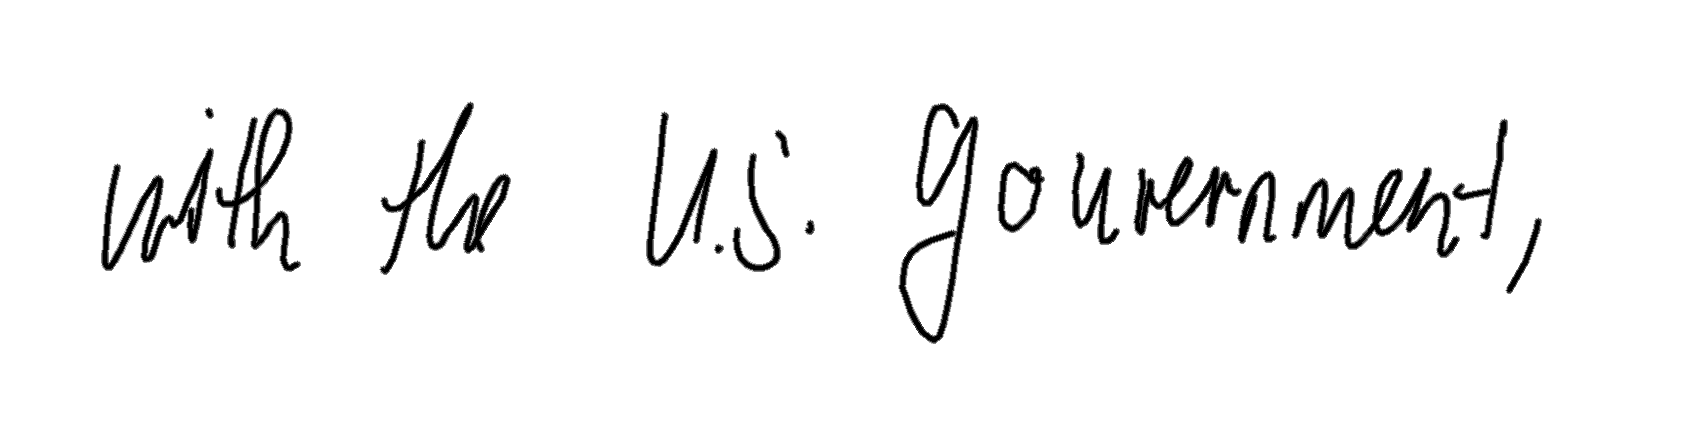 with the U.S. government,